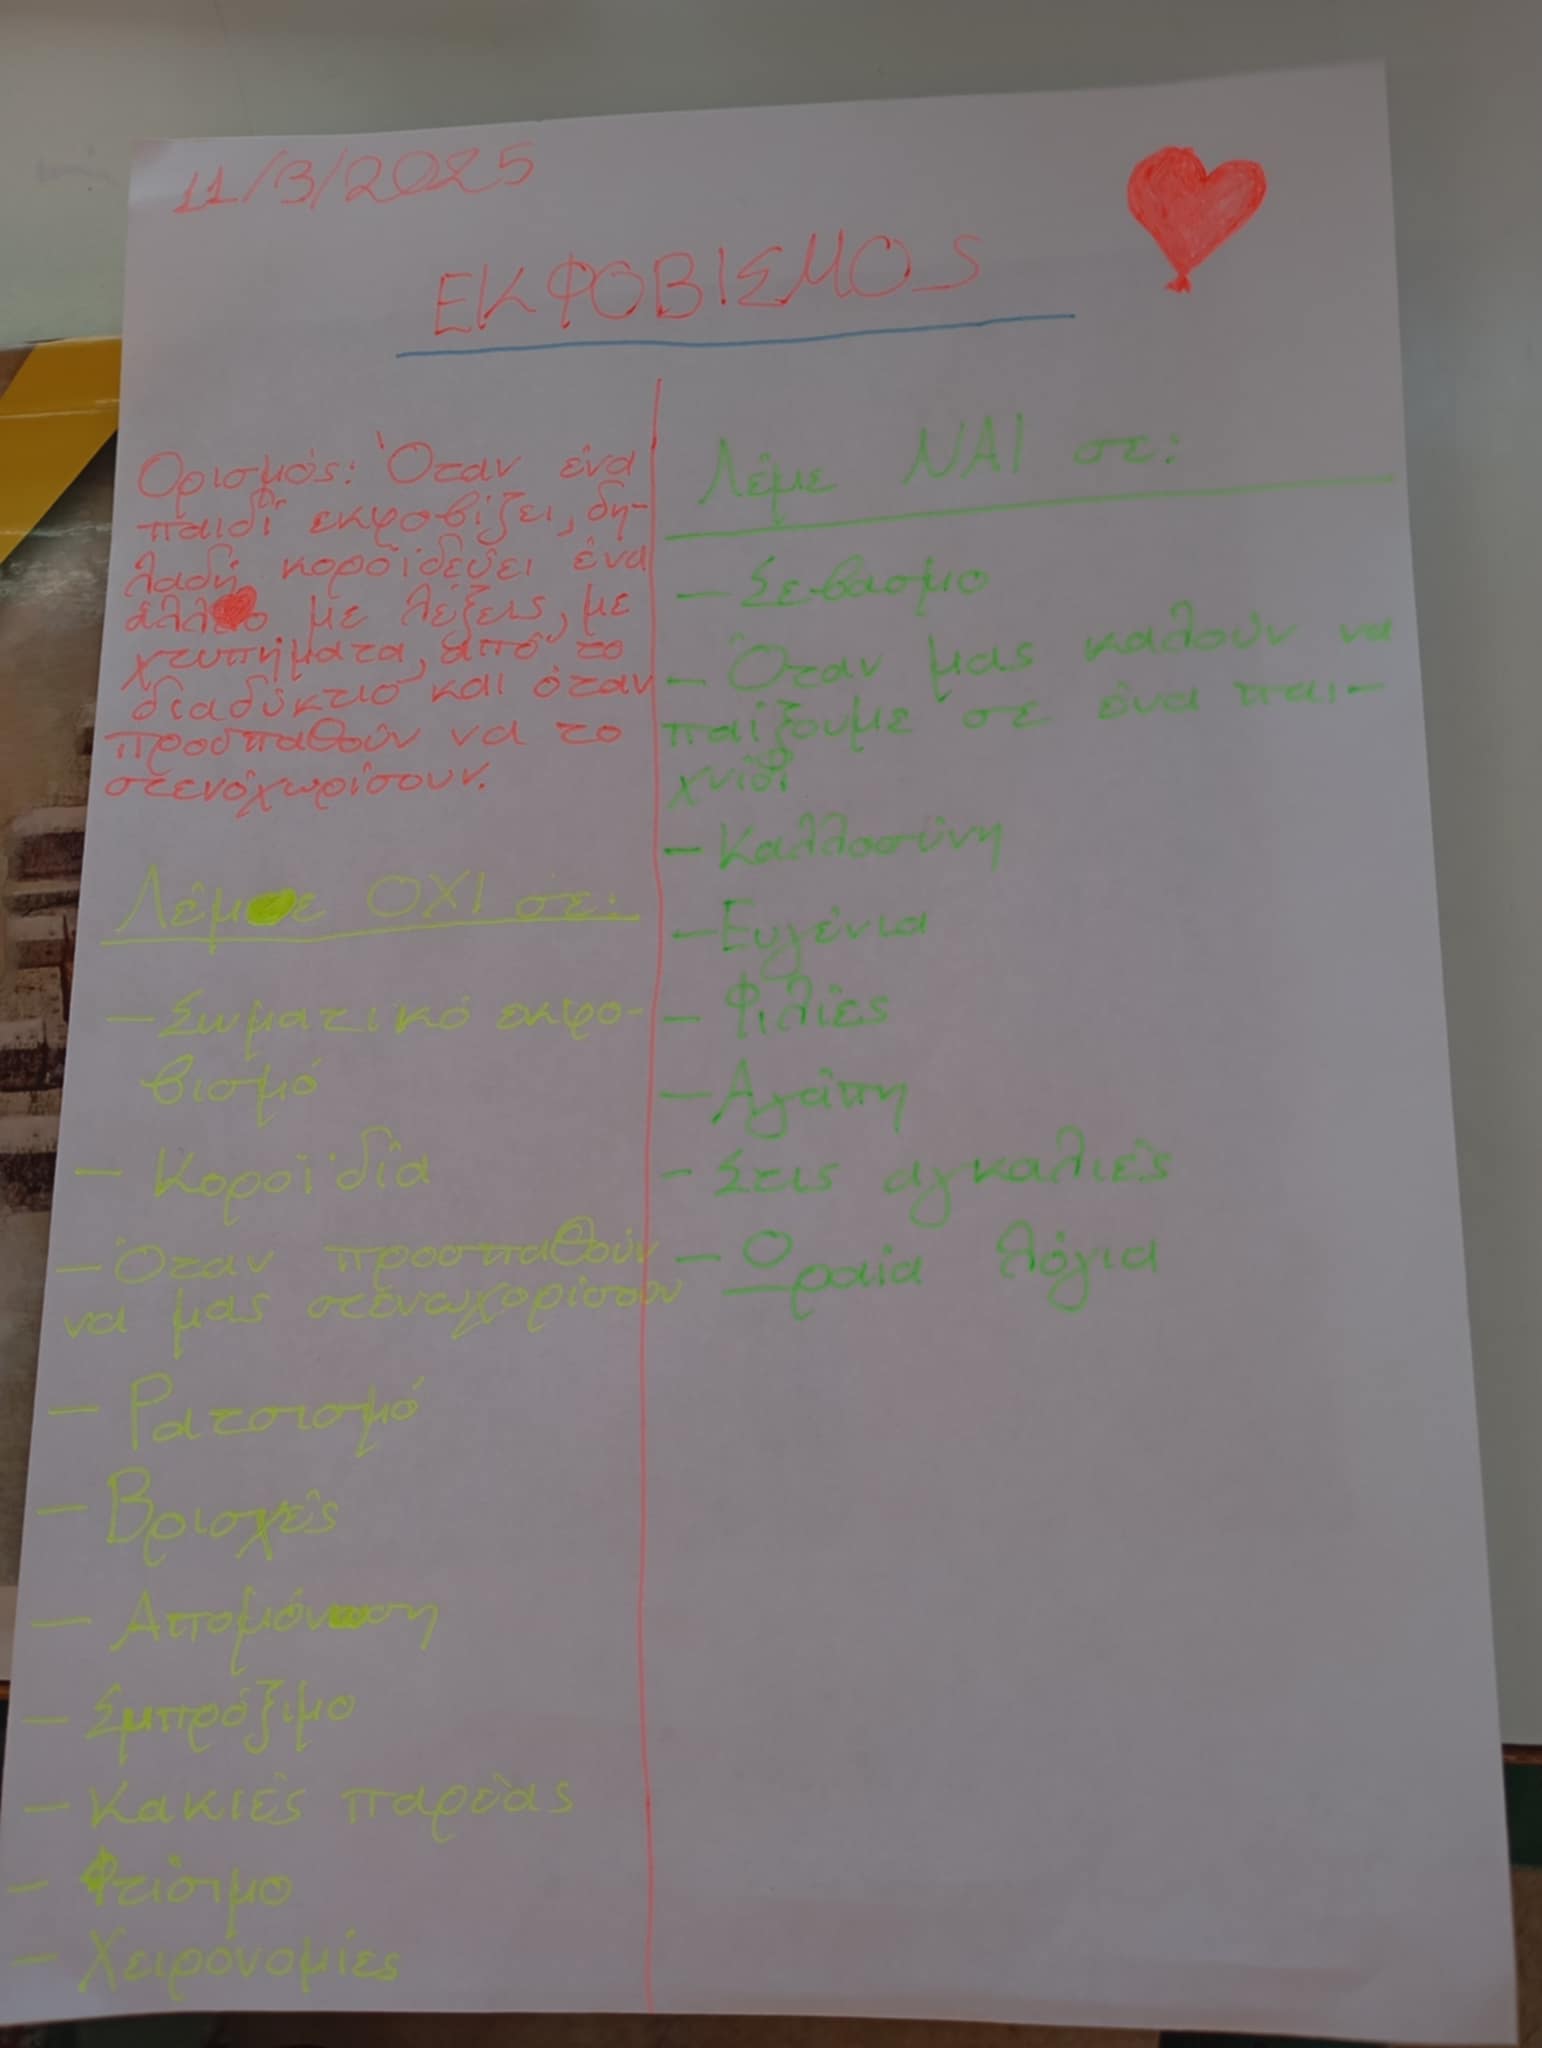 11/3/2025
ΕΚΦΟΒΙΣΜΟS
Ορισμός: Όταν ένα
παιδί εκφοβίζει, δη-
λαδή κοροϊδεύει ένα
άλλο με λέξεις, με
χτυπήματα, από το
διαδύκτιο και όταν
προσπαθούν να το
στενοχωρίσουν.
Λέμε ΟΧΙ σε:
- Σωματικό εκφο-
βισμό
- Κοροϊδία
- Όταν προσπαθούν
να μας στενωχορίσουν
- Ρατσισμό
- Βρισχιές
- Απομόνωση
- Σμπρόξιμο
- Κακιές παρέας
- Φτίσιμο
- Χειρονομίες
Λέμε ΝΑΙ σε:
- Σεβασμο
- Όταν μας καλούν να
παίξουμε σε ένα παι-
χνίδι
- Καλλοσύνη
- Ευγένια
- Φιλίες
- Αγάπη
- Στις αγκαλιές
- Οραία λόγια